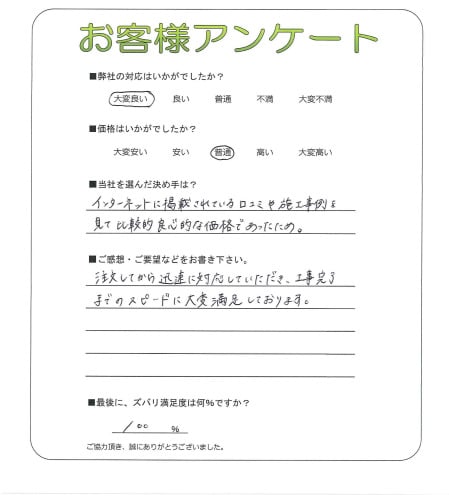 お客様アンケート
■弊社の対応はいかがでしたか？
大変良い 良い 普通 不満 大変不満
■価格はいかがでしたか？
大変安い 安い 普通 高い 大変高い
■当社を選んだ決め手は？
インターネットに掲載されている口コミや施工事例を
見て比較的良心的な価格であったため。
■ご感想・ご要望などをお書き下さい。
注文してから迅速に対応していただき、工事完了
までのスピードに大変満足しております。
■最後に、ズバリ満足度は何%ですか？
100 %
ご協力頂き、誠にありがとうございました。